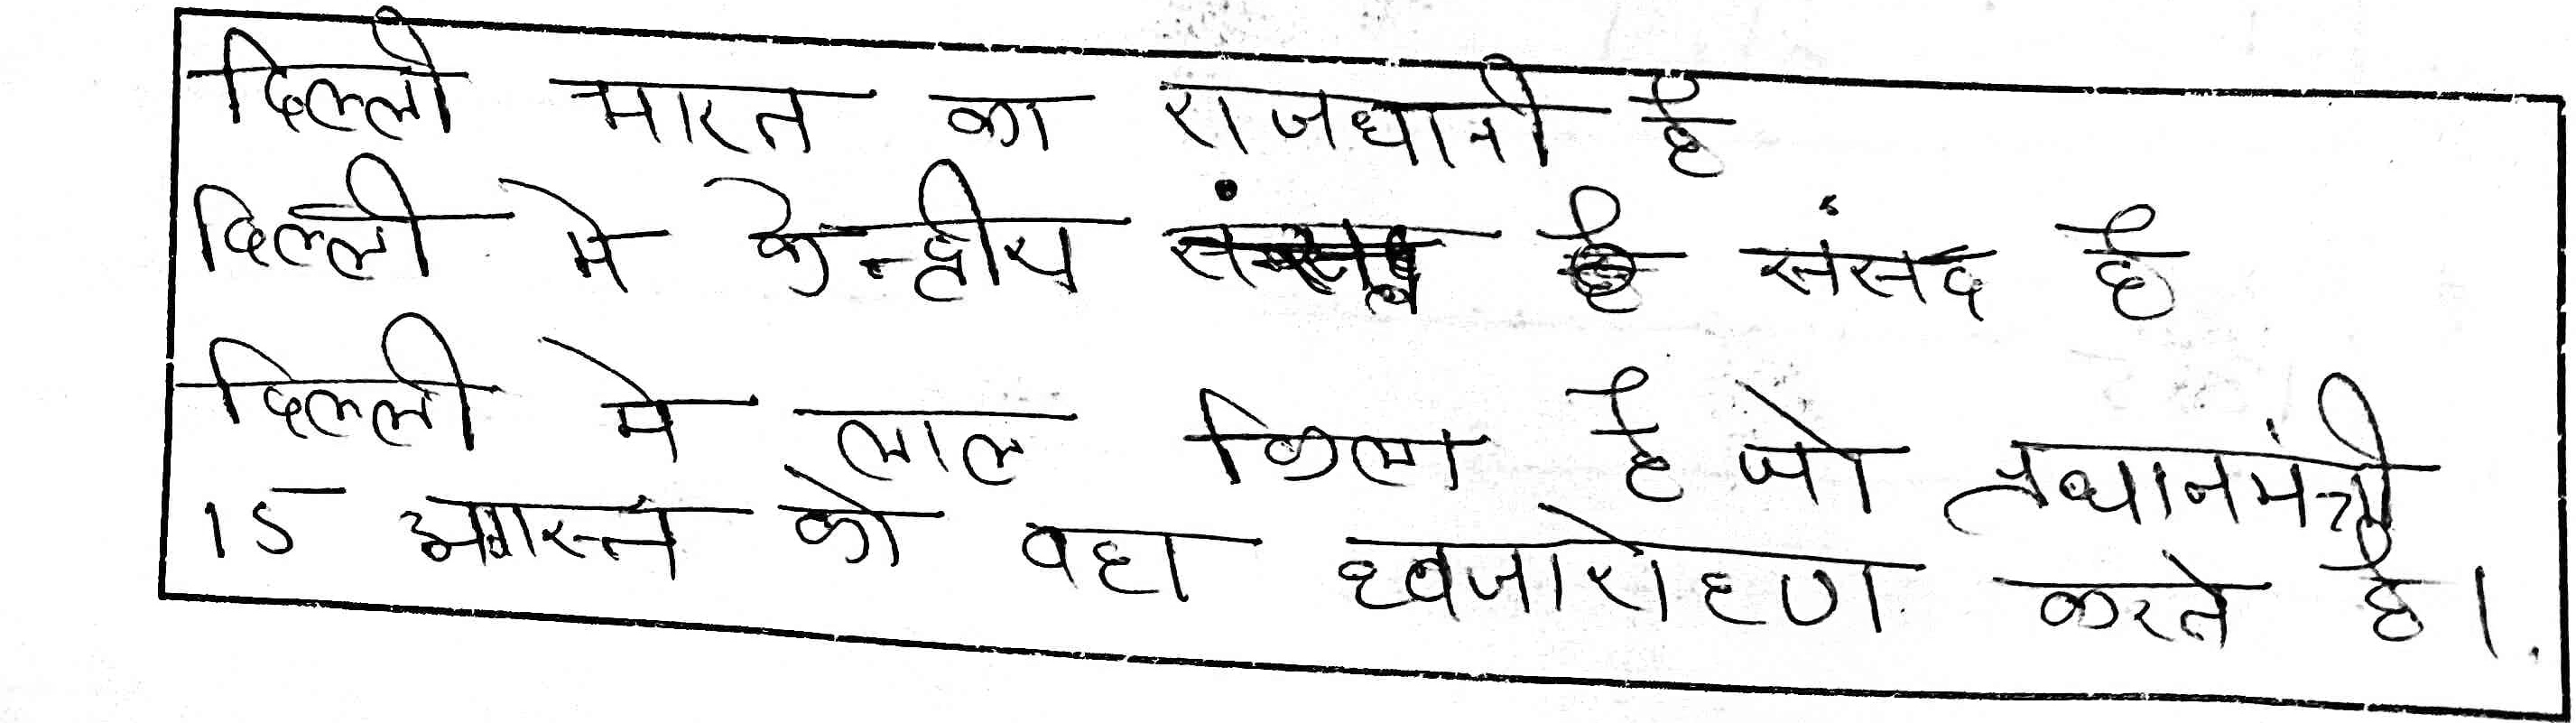 दिल्ली भारत का राजधानी है
दिल्ली मे केन्द्रीय संसद है
दिल्ली मे लाल किला है जो प्रधानमंत्री
15 अगस्त को वहा ध्वजारोहण करते है।